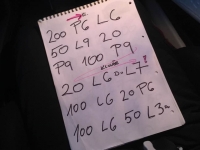 200 P6 L6
50 L9 20
P9 100 P9
20 L6 L7 ?
100 L6 20 P6
100 L6 50 L3